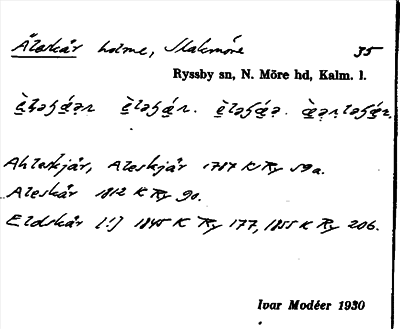 Åleskär holme, Slakmöre 35
Ryssby sn, N. Möre hd, Kalm. l.
Ahleskjär, Aleskjär 1787 K Ry 59a.
Aleskär 1812 K Ry 90.
Eldskär [!] 1845 K Ry 177, 1855 K Ry 206.
Ivar Modéer 1930